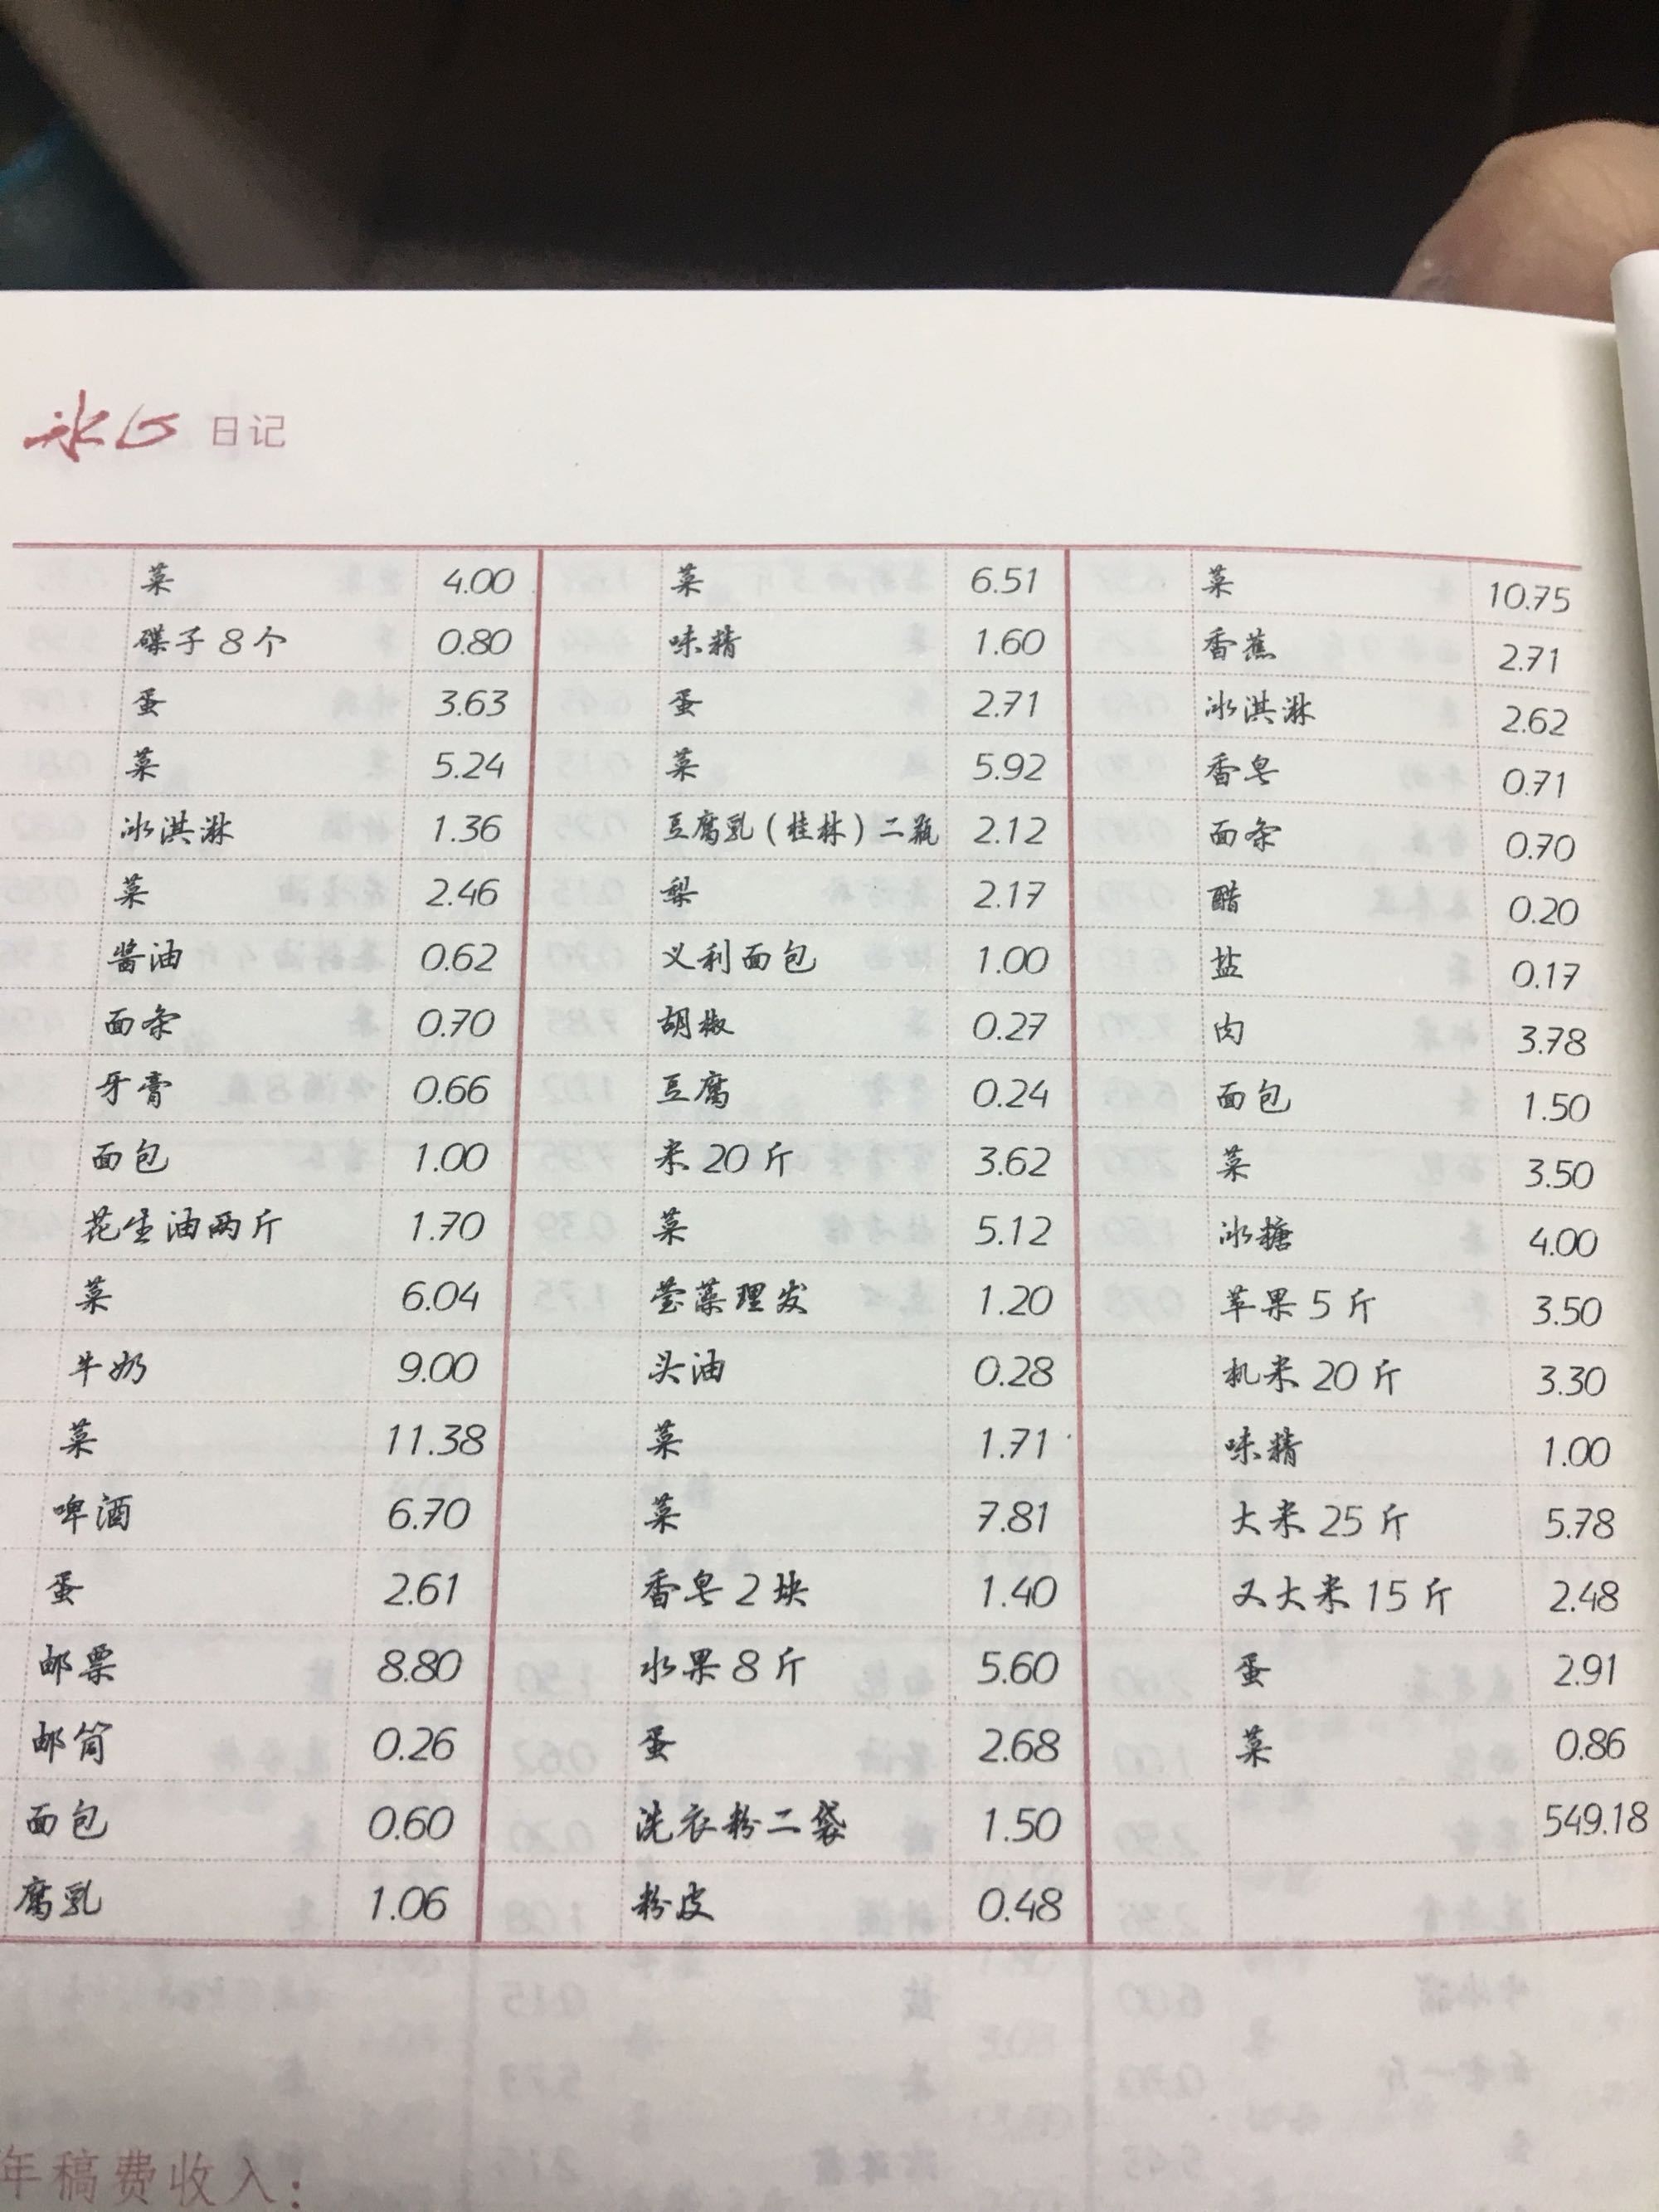 冰心 日记
菜 4.00 菜 6.51 菜 10.75
碟子8个 0.80 味精 1.60 香蕉 2.71
蛋 3.63 蛋 2.71 冰淇淋 2.62
菜 5.24 菜 5.92 香皂 0.71
冰淇淋 1.36 豆腐乳(桂林)二瓶 2.12 面条 0.70
菜 2.46 梨 2.17 醋 0.20
酱油 0.62 义利面包 1.00 盐 0.17
面条 0.70 胡椒 0.27 肉 3.78
牙膏 0.66 豆腐 0.24 面包 1.50
面包 1.00 米20斤 3.62 菜 3.50
花生油两斤 1.70 菜 5.12 冰糖 4.00
菜 6.04 莹藻理发 1.20 苹果5斤 3.50
牛奶 9.00 头油 0.28 机米20斤 3.30
菜 11.38 菜 1.71 味精 1.00
啤酒 6.70 菜 7.81 大米25斤 5.78
蛋 2.61 香皂2块 1.40 又大米15斤 2.48
邮票 8.80 水果8斤 5.60 蛋 2.91
邮筒 0.26 蛋 2.68 菜 0.86
面包 0.60 洗衣粉二袋 1.50 549.18
腐乳 1.06 粉皮 0.48
年稿费收入: